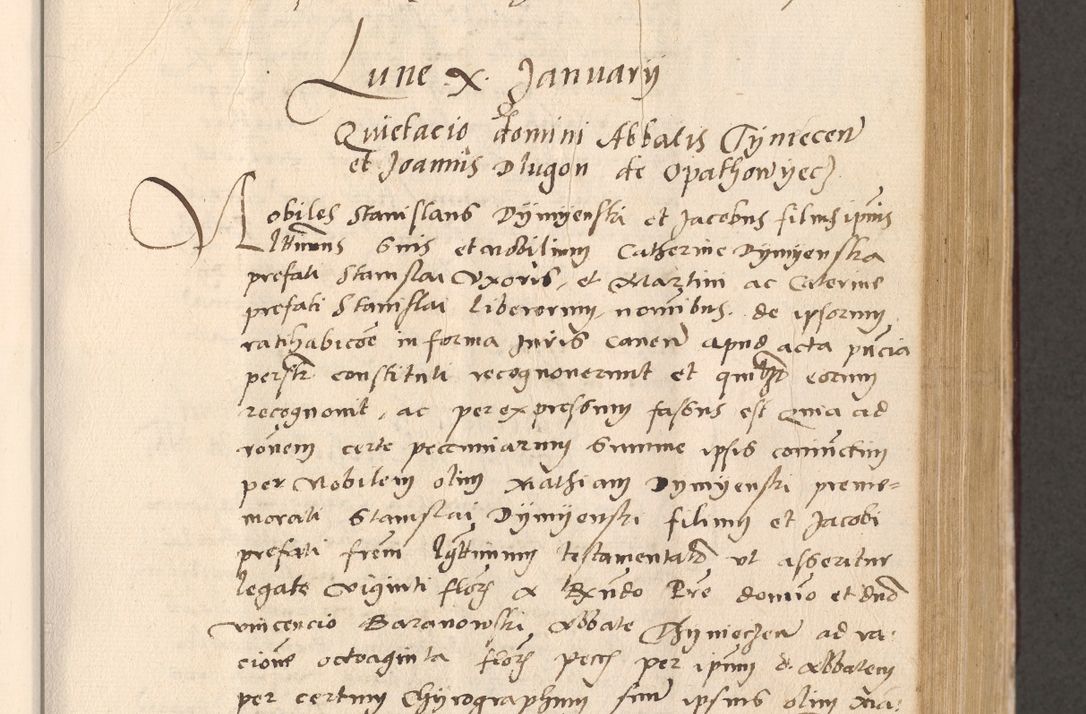 Lune x. Januarij
Quietacio domini Abbatis Tyniecen
et Joannis Dlugon de Opathowyecz
Nobiles Stanislaus Dymyenski et Jacobus filius ipius
lttimus suis et nobilium Catherine Dymyenska
prefati Stanislai Uxoris, et Martini ac Caterine
prefati Stanislai liberorum nominibus de ipsorum
ratihabicoe in forma Juris caven apud acta pncia
persltr constituti recognoverunt et quilbt eorum
recognovit, ac per expressum fassus est Quia ad
ronem certe peccuniarum summe ipsis coniunctim
per Nobilem olim Mathiam Dymyenski preme-
morati Stanislai Dymyenski filium et Jacobi
prefati frem lgttimum testamentalr ut asseritur
legate viginti florz a Rxndo Pre domino et dno
vincencio Baranowski Abbate Thynieczen ad ra-
cione octoaginta florz pecc per ipum d. Abbatem
per certum Chyrographum sue ipsius olim Ma-